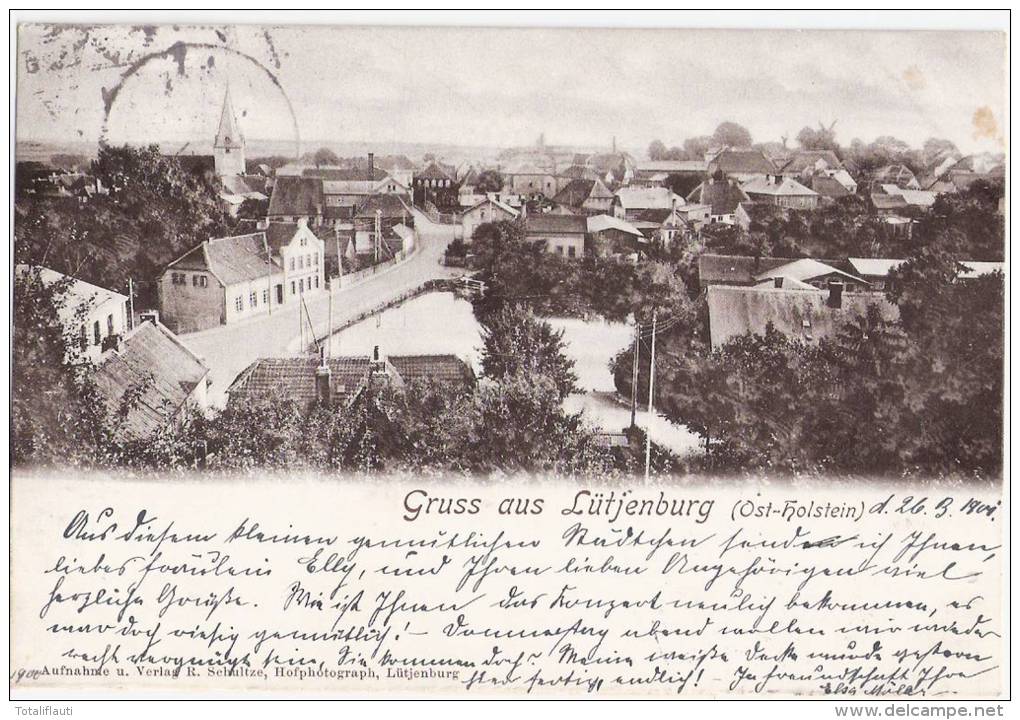 Gruss aus Lütjenburg (Ost-Holstein) d. 26. 3. 1901.
Aus diesem kleinen gemütlichen Städtchen sende ich Ihnen,
liebes Fräulein Elly, und Ihren lieben Angehörigen viel
herzliche Grüße. Wie ist Ihnen das Konzert neulich bekommen, es
war doch riesig gemütlich! – Donnerstag abend wollen wir wieder
recht vergnügt sein, Sie kommen doch? Meine weiße Decke wurde gestern
fertig, endlich! – In Freundschaft Ihre
Elsa
Aufnahme u. Verlag R. Schultze, Hofphotograph, Lütjenburg
1900
Totaliflauti
www.delcampe.net